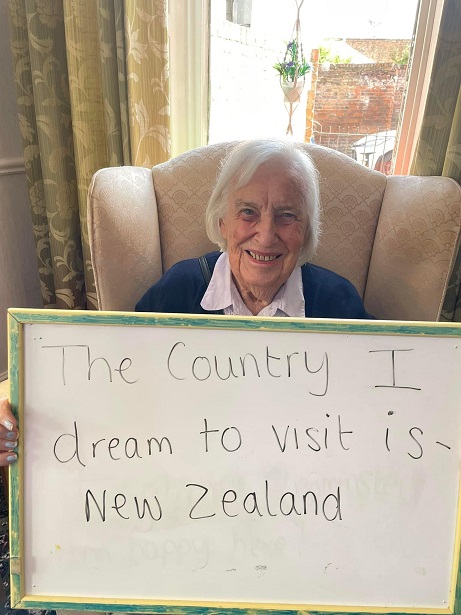 The Country I
dream to visit is-
New Zealand